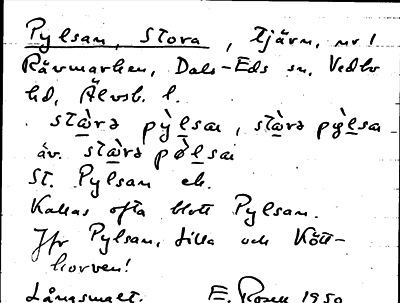 Pylsan, Stora, tjärn, nr 1
Rävmarken, Dals-Eds sn, Vedbo
hd, Älvsb. l.
stὼrə pỳlsaı, stὼrə pỳlsa
äv. stὼrə pø̀lsaı
St. Pylsan ek.
Kallas ofta blott Pylsan.
Jfr Pylsan, Lilla och Kött-
korven!
Långsmalt. E. Rosell 1950